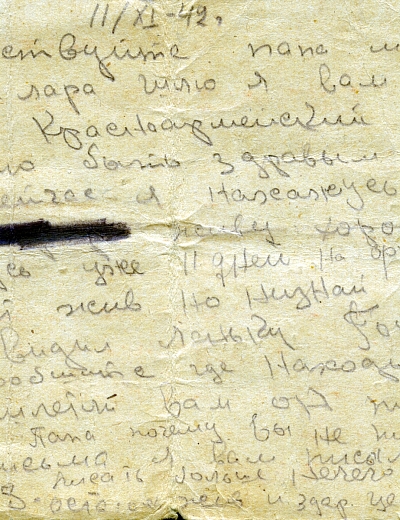 11/XI-42г.
ствуйте папа м
лара шлю я вам
Красноарменский
но быть здравым
ейчас я нахажусь
живу хоро
сь уже 11 дней на
й жив но низнай
видил
общите где находи
вам от
Папа почему вы не пи
исьма я вам писал
писать больше нечего
остаюсь жив и здар. це